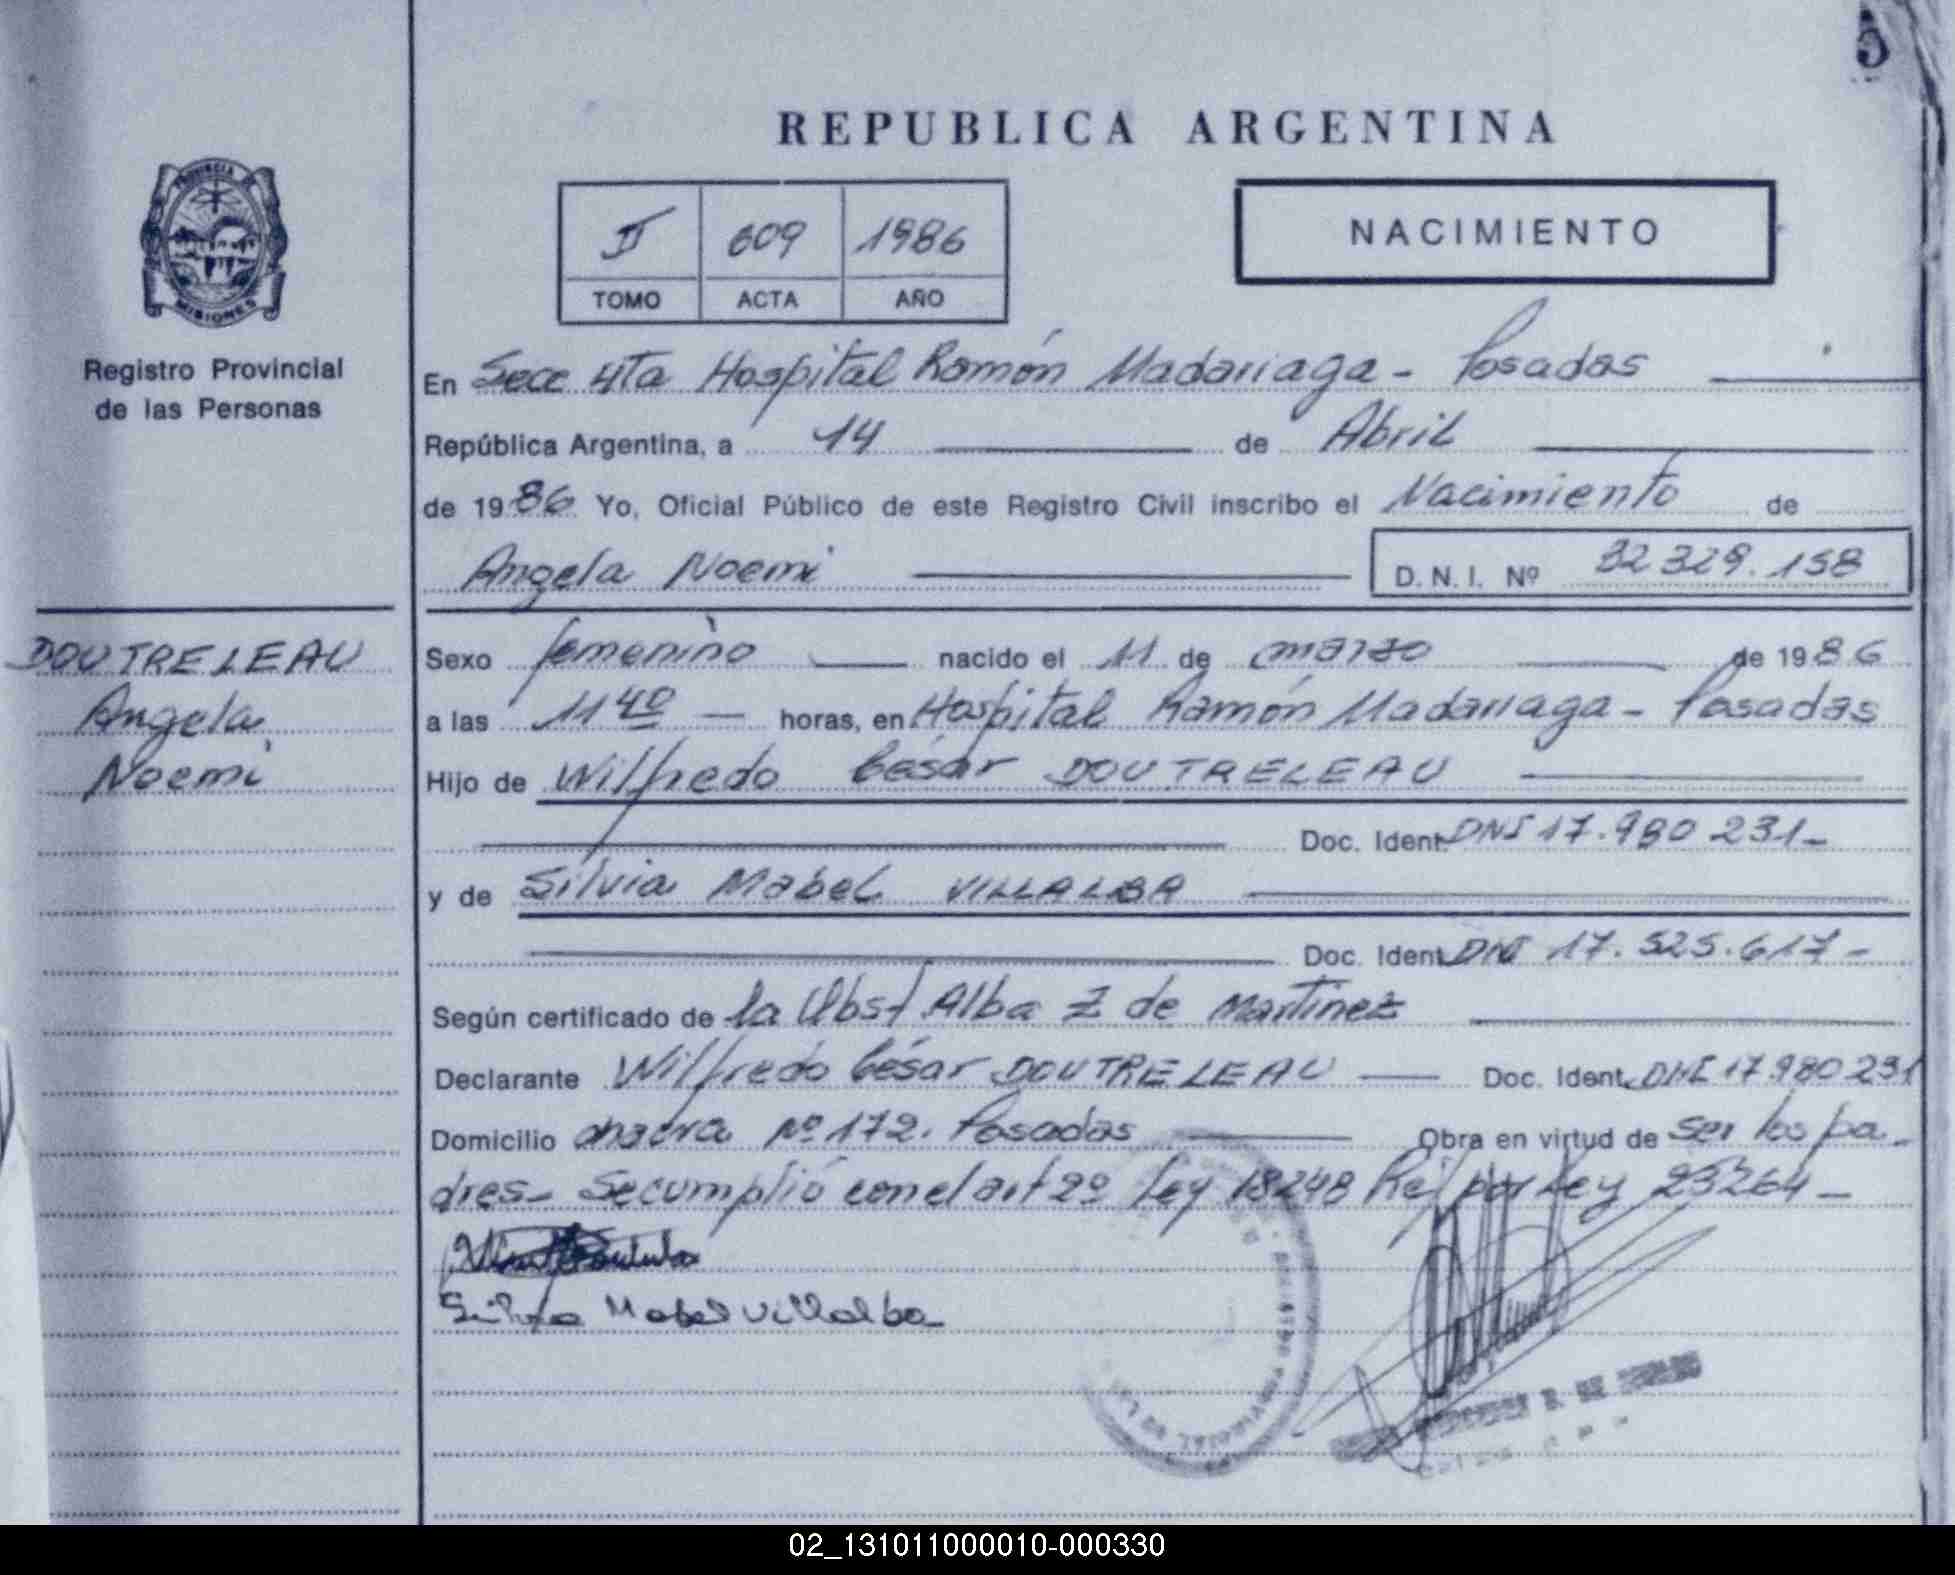 5
REPUBLICA ARGENTINA
II 609 1986
TOMO ACTA AÑO
NACIMIENTO
PROVINCIA DE
MISIONES
Registro Provincial
de las Personas
En Secc 4Ta Hospital Ramón Madariaga - Posadas
República Argentina, a 14 de Abril
de 1986 Yo, Oficial Público de este Registro Civil inscribo el Nacimiento de
Angela Noemi D.N.I. Nº 32 329.158
DOUTRELEAU
Angela
Noemi
Sexo femenino nacido el 11 de marzo de 1986
a las 11 40 horas, en Hospital Ramón Madariaga - Posadas
Hijo de Wilfredo César DOUTRELEAU
Doc. Ident. DNI 17.980 231-
y de Silvia Mabel VILLALBA
Doc. Ident. DNI 17.525.617-
Según certificado de la Obst Alba Z de Martinez
Declarante Wilfredo César DOUTRELEAU Doc. Ident. DNI 17 980 231
Domicilio chacra Nº 172. Posadas Obra en virtud de ser los pa-
dres- Se cumplió con el art 2º Ley 18248 Ref por Ley 23264-
Silvia Mabel Villalba
02_131011000010-000330